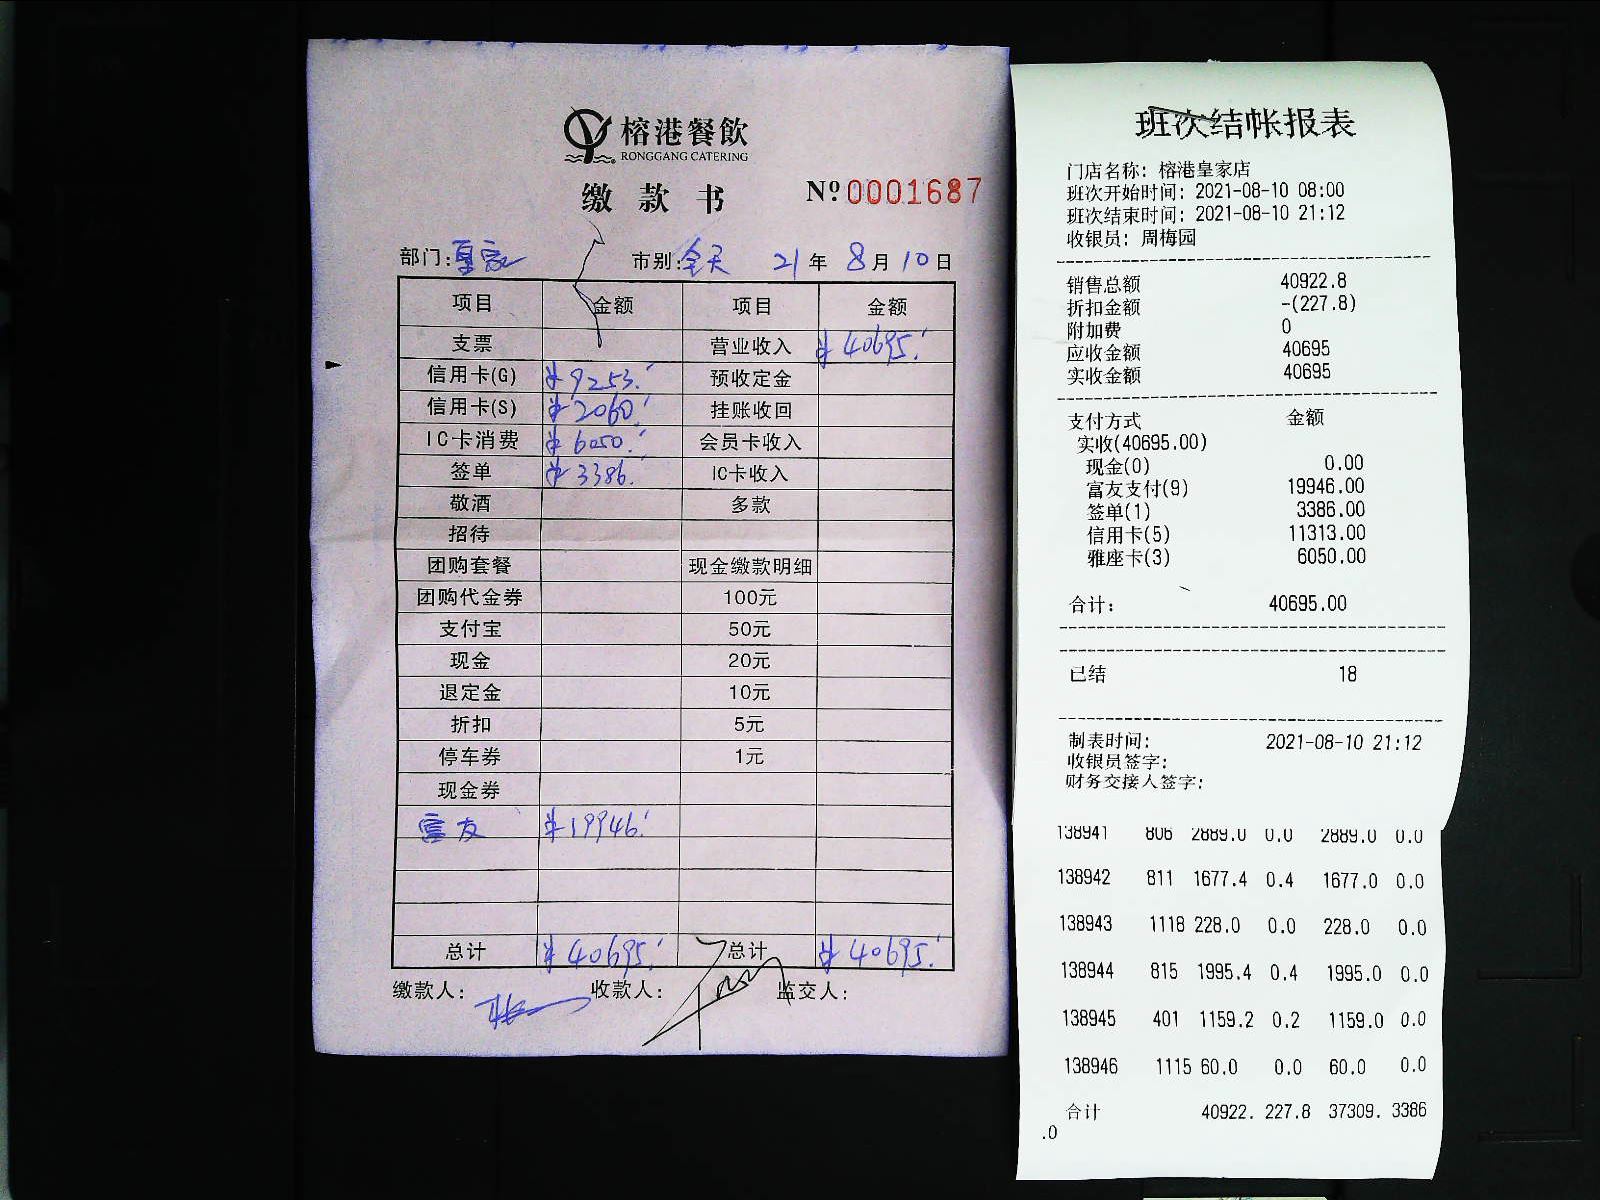 榕港餐飲
RONGGANG CATERING
缴款书 Nº 0001687
部门:皇家 市别:全天 21年8月10日
项目 金额 项目 金额
支票 营业收入 ¥40695.
信用卡(G) ¥9253. 预收定金
信用卡(S) ¥2060. 挂账收回
IC卡消费 ¥6050. 会员卡收入
签单 ¥3386. IC卡收入
敬酒 多款
招待
团购套餐 现金缴款明细
团购代金券 100元
支付宝 50元
现金 20元
退定金 10元
折扣 5元
停车券 1元
现金券
富友 ¥19946.
总计 ¥40695. 总计 ¥40695.
缴款人: 收款人: 监交人:
班次结帐报表
门店名称: 榕港皇家店
班次开始时间: 2021-08-10 08:00
班次结束时间: 2021-08-10 21:12
收银员: 周梅园
销售总额 40922.8
折扣金额 -(227.8)
附加费 0
应收金额 40695
实收金额 40695
支付方式 金额
实收(40695.00)
现金(0) 0.00
富友支付(9) 19946.00
签单(1) 3386.00
信用卡(5) 11313.00
雅座卡(3) 6050.00
合计: 40695.00
已结 18
制表时间: 2021-08-10 21:12
收银员签字:
财务交接人签字:
138941 806 2889.0 0.0 2889.0 0.0
138942 811 1677.4 0.4 1677.0 0.0
138943 1118 228.0 0.0 228.0 0.0
138944 815 1995.4 0.4 1995.0 0.0
138945 401 1159.2 0.2 1159.0 0.0
138946 1115 60.0 0.0 60.0 0.0
合计 40922. 227.8 37309. 3386
.0